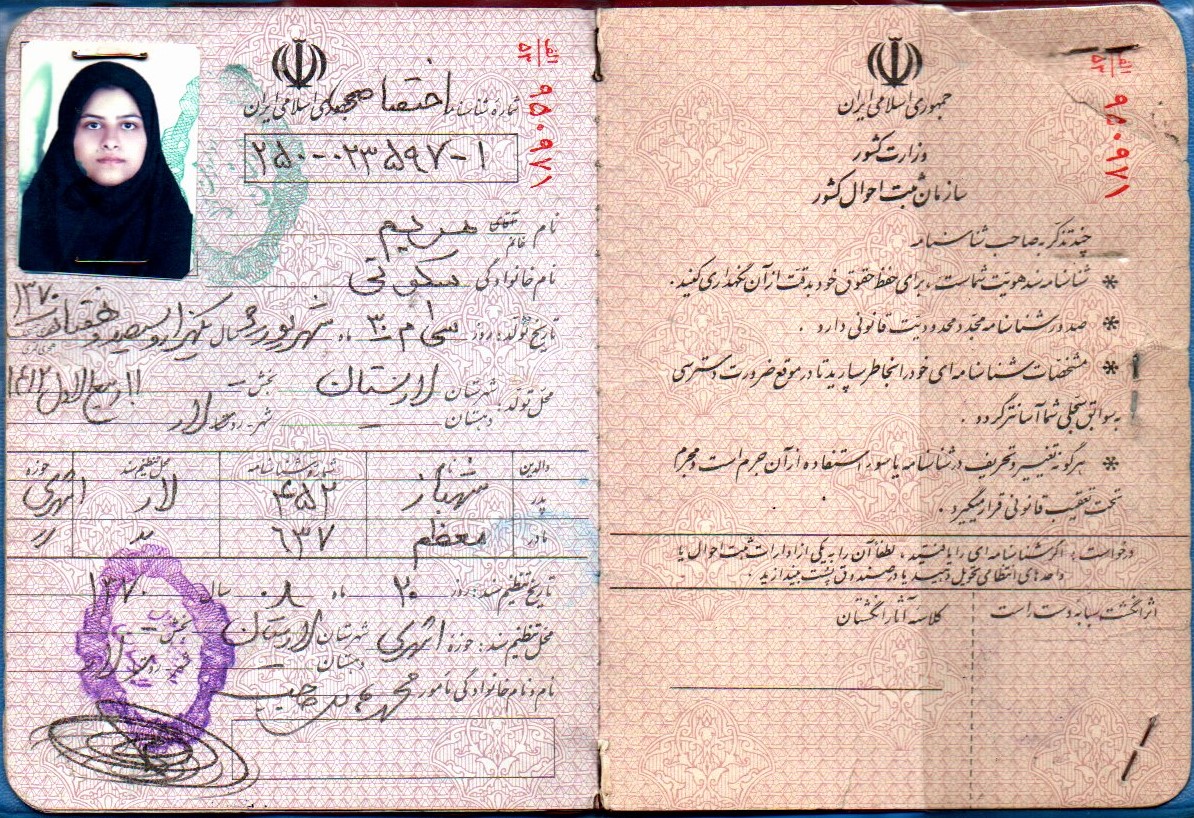 الف
۵۳
۹۵۰۹۷۱
جمهوری اسلامی ایران
وزارت کشور
سازمان ثبت احوال کشور
چند تذکر به صاحب شناسنامه
* شناسنامه سند هویت شماست ، برای حفظ حقوق خود بدقت از آن نگهداری کنید .
* صدور شناسنامه مجدد محدودیت قانونی دارد .
* مشخصات شناسنامه ای خود را بخاطر بسپارید تا در موقع ضرورت دسترسی
به سوابق سجلی شما آسانتر گردد .
* هرگونه تغییر و تحریف در شناسنامه یا سوء استفاده از آن جرم است و مجرم
تحت تعقیب قانونی قرار میگیرد .
درخواست : اگر شناسنامه ای را یافتید ، لطفاً آن را به یکی از ادارات ثبت احوال یا
واحدهای انتظامی تحویل دهید یا در صندوق پست بیندازید .
اثر انگشت سبابه دست راست
کلاسه آثار انگشتان
الف
۵۳
۹۵۰۹۷۱
جمهوری اسلامی ایران
شماره شناسنامه اختصاصی
۲۵۰-۰۲۳۵۹۷-۱
نام آقای خانم مریم
نام خانوادگی سکوتی
تاریخ تولد : روز سی ام ۳۰ ماه شهریور سال یکهزار و سیصد و هفتاد ۱۳۷۰
محل تولد : شهرستان لارستان بخش - ۱۱ ربیع الاول ۱۴۱۲
دهستان - شهر - روستا لار
والدین نام شماره شناسنامه محل تنظیم سند حوزه
پدر شهباز ۴۵۲ لار
مادر معظم ۶۳۷ " "
تاریخ تنظیم سند : روز ۲۰ ماه ۰۸ سال ۱۳۷۰
محل تنظیم سند : حوزه شهرستان لارستان بخش -
دهستان - شهر روستا لار
نام و نام خانوادگی مأمور محمد